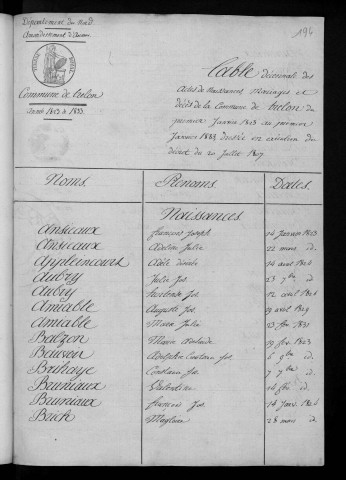 194
Département du Nord
Arrondissement d'Avesnes
Commune de Trélon
Année 1823 à 1833.
Table décennale des
Actes de Naissances Mariages et
décès de la Commune de Trélon du
premier Janvier 1823 au premier
Janvier 1833 dressée en exécution du
décret du 20 Juillet 1807
Noms. Prénoms. Dates.
Naissances
Ansieaux François Joseph 14 Janvier 1823
Ansieaux Adeline Julie 22 mars id.
Appleincourt Adèle 14 avril 1824
Aubry Julie Jos. 23 7bre id.
Aubry Hortense Jos. 12 avril 1826
Amiable Auguste Jos. 29 avril 1829
Amiable Marie Julie 23 fev. 1831
Balzon Marie Adelaide 19 fev. 1823
Bauson Adolphe Constant Jos. 6 9bre id.
Brihaye Constant Jos. 7 7bre id.
Bruniaux Valentine id.
Bruniaux François Jos. 14 Janv. 1824
Broich 28 mars id.